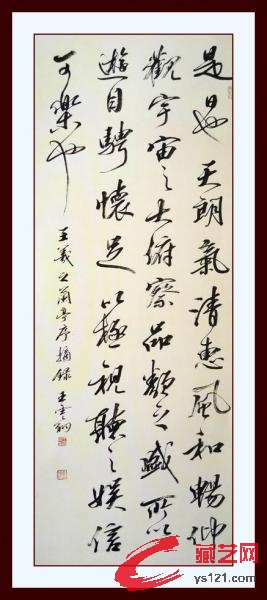 是日也天朗氣清惠風和暢仰
觀宇宙之大俯察品類之盛所以
遊目騁懷足以極視聽之娛信
可樂也
王羲之蘭亭序摘錄 王雲
藏艺网
ys121.com